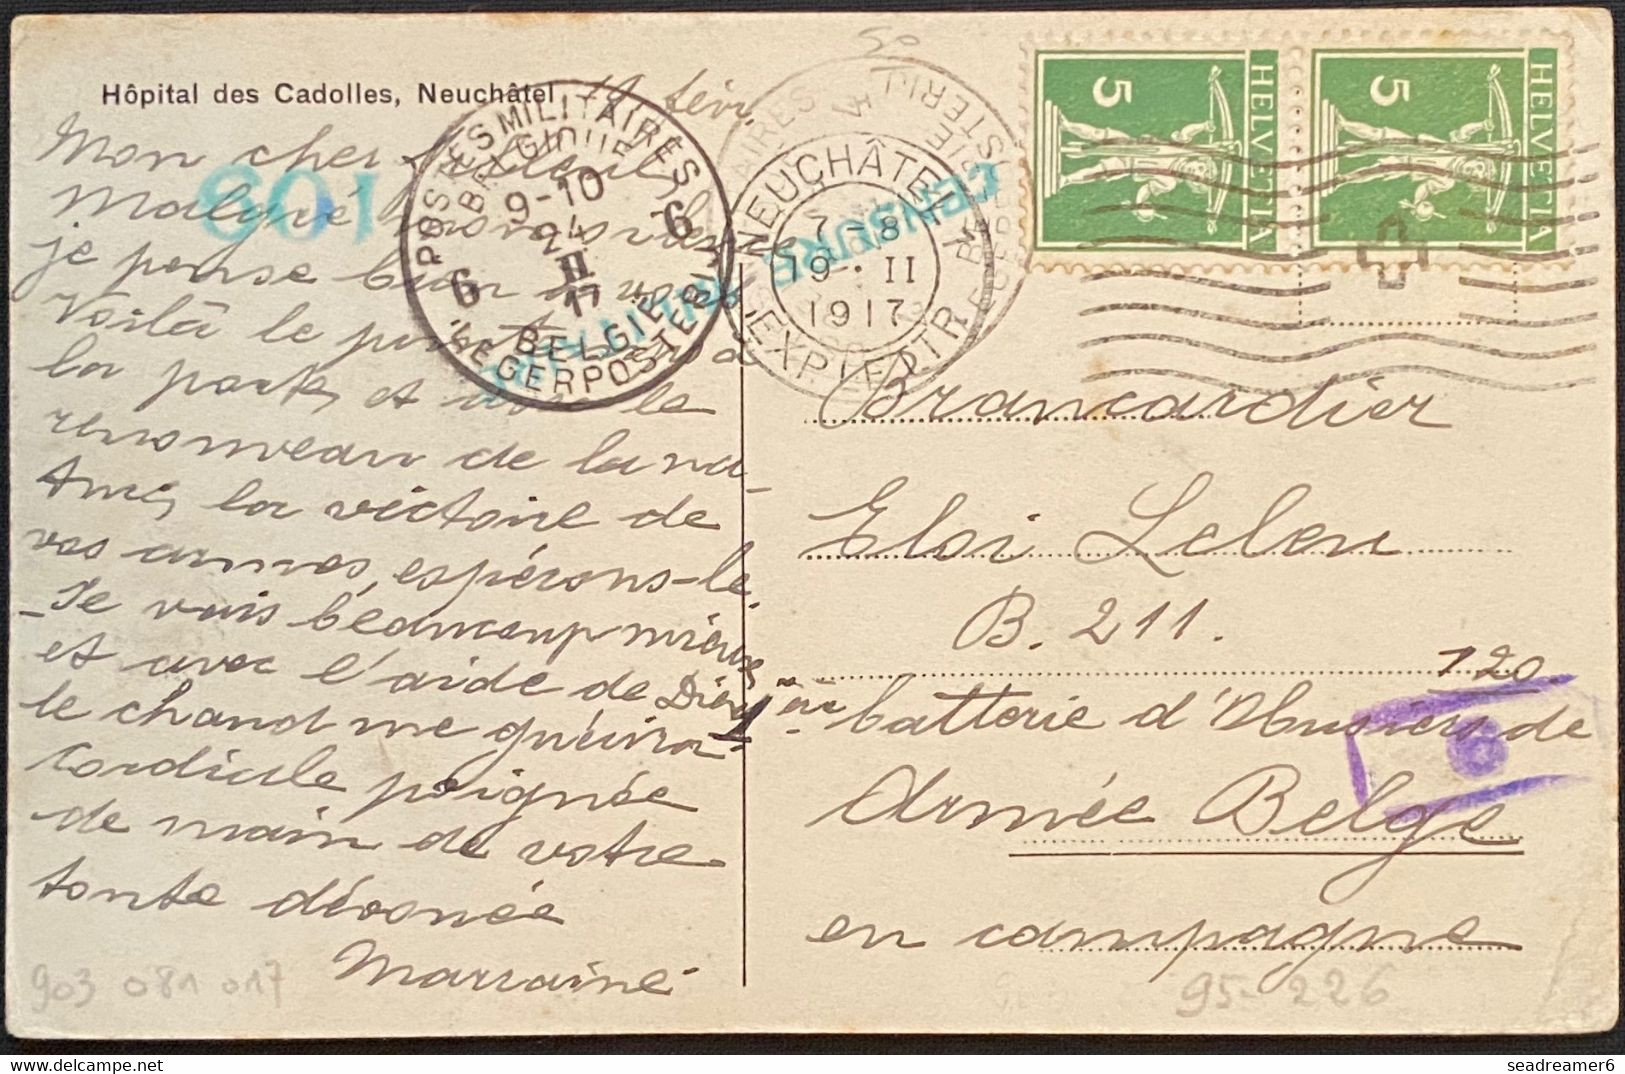 Hôpital des Cadolles, Neuchâtel
févr.
Mon cher filleul,
Malgré mon silence
je pense bien à vous
Voilà le printemps à
la porte, et avec le
renouveau de la na-
ture, la victoire de
vos armes, espérons-le.
-Je vais beaucoup mieux
et avec l'aide de Dieu
le chaud me guérira
Cordiale poignée
de main de votre
toute dévouée
Marraine
903 081 017
109
POSTES MILITAIRES
BELGIQUE
9-10
24
II
17
6 6
BELGIË
LEGERPOSTERIJ
CENSURE MILITAIRE
NEUCHÂTEL
7-8
19·II
1917
EXP. LETTR.
5
HELVETIA
5
HELVETIA
Brancardier
Eloi Leleu
B. 211.
120
1ère batterie d'Obusiers de
Armée Belge
en campagne
95-226
6
seadreamer6 - delcampe.net